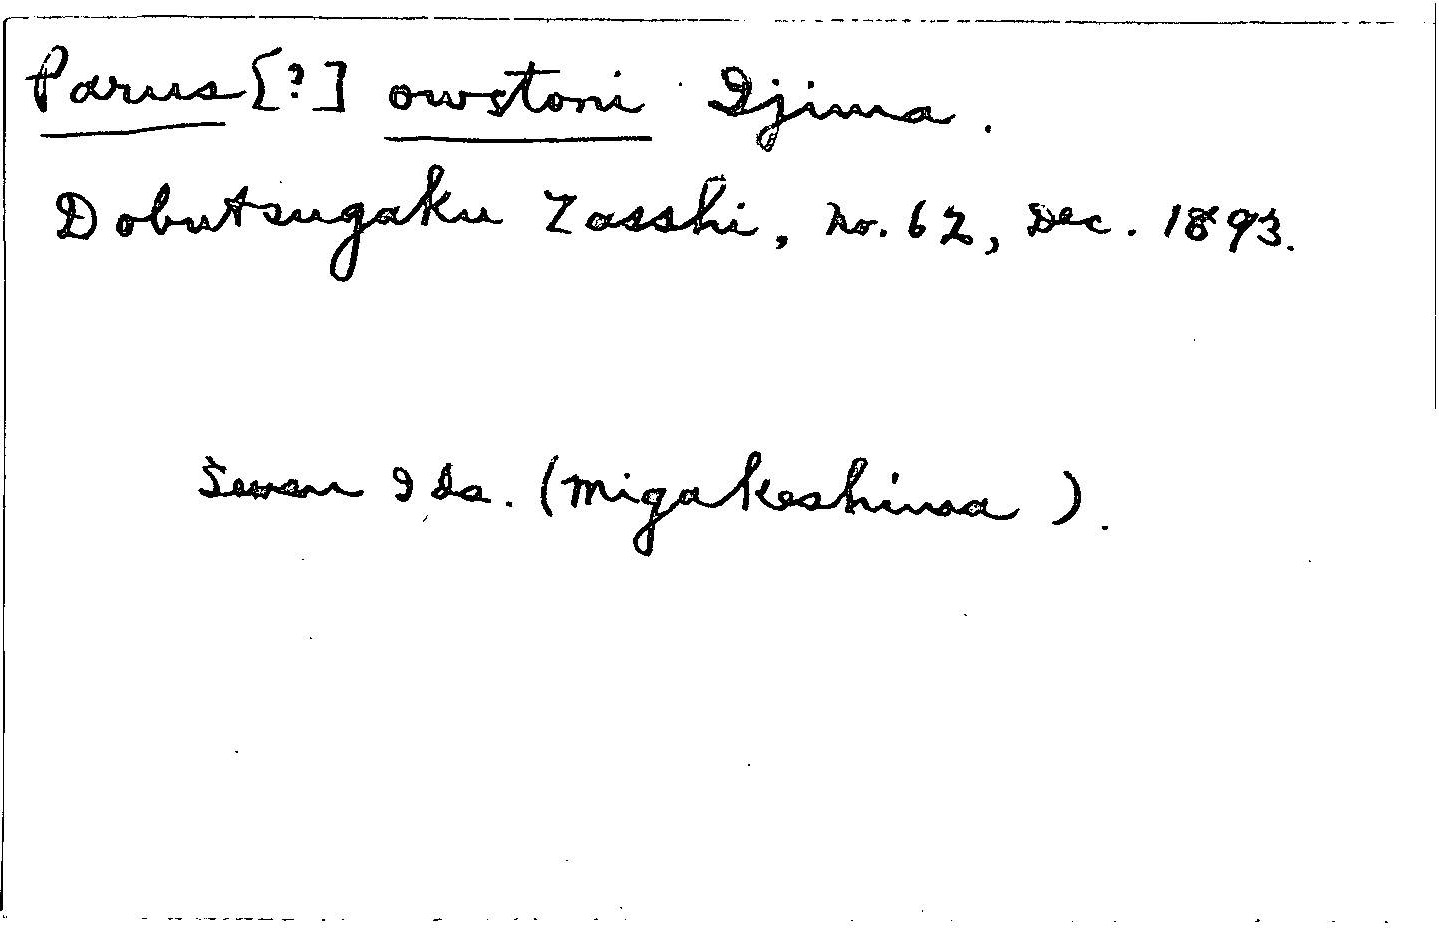 Parus [?] owstoni Ijima.
Dobutsugaku Zasshi, no. 62, Dec. 1893.
Seven Ids. (Migakeshima).